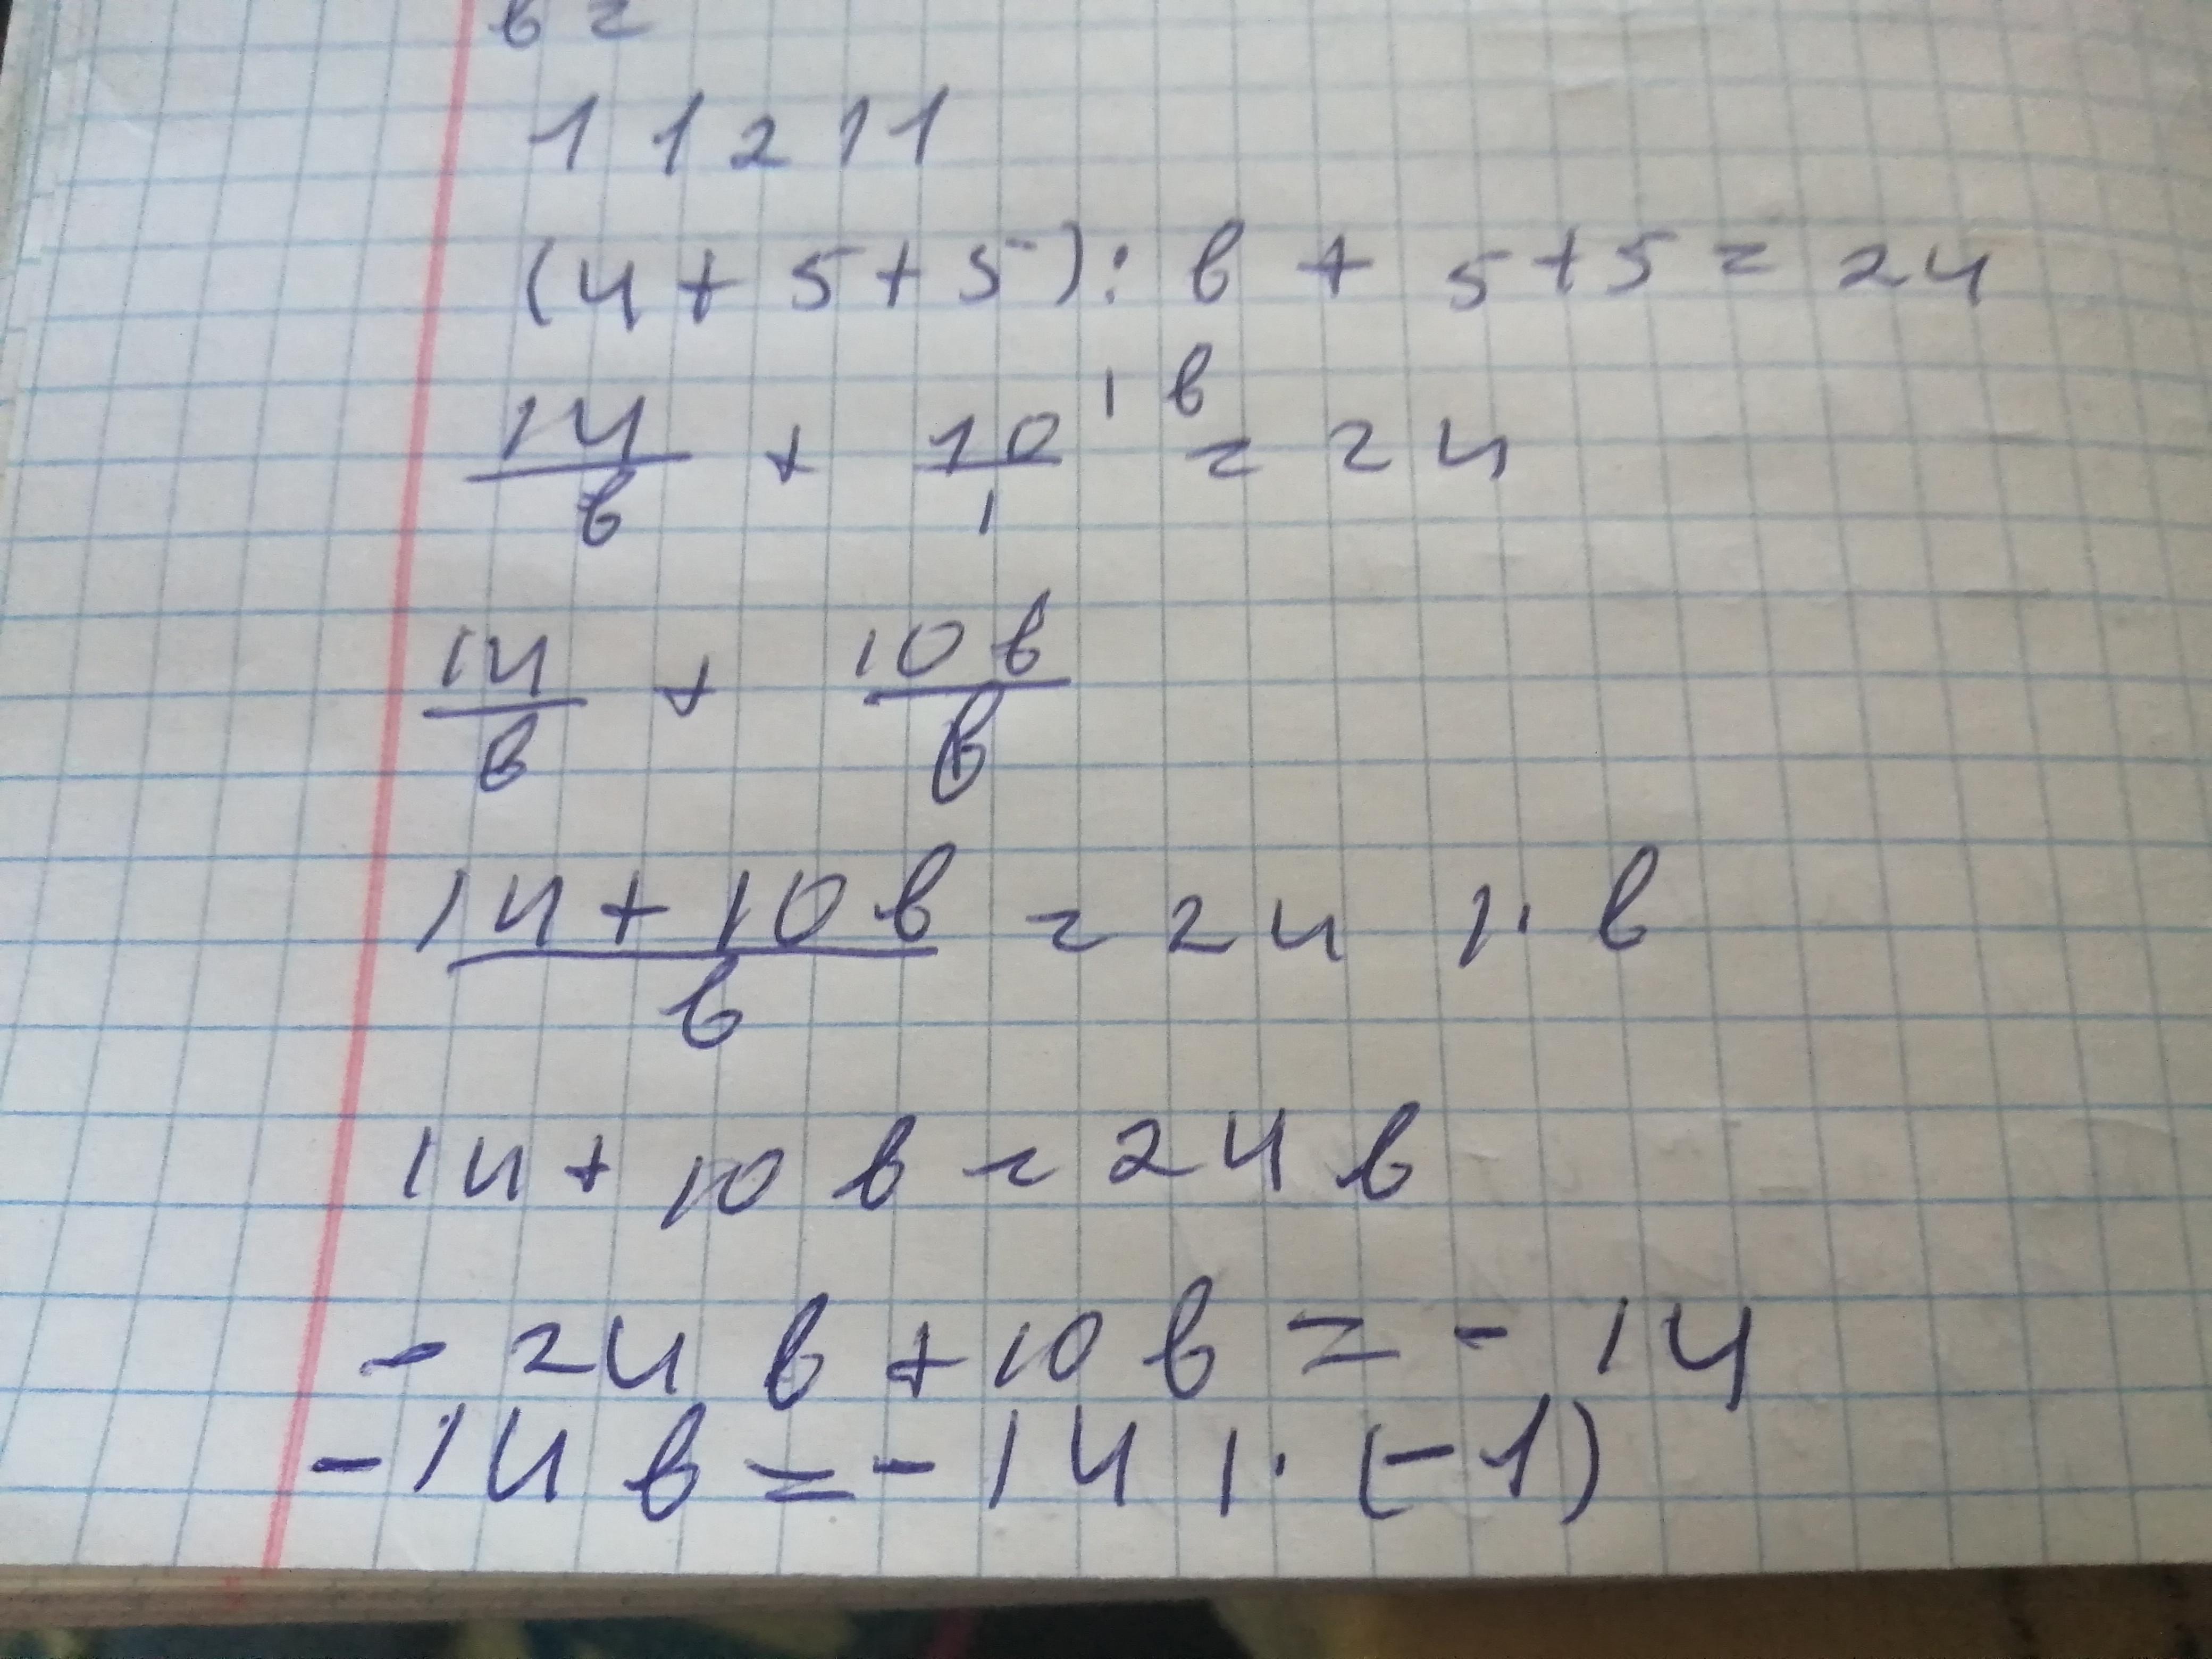 в =
1 1 2 1 1
(4 + 5 + 5) : в + 5 + 5 = 24
14/в + 10/1 ^(1в) = 24
14/в + 10в/в
(14 + 10в)/в = 24 |· в
14 + 10в = 24в
- 24в + 10в = - 14
- 14в = - 14 |· (-1)